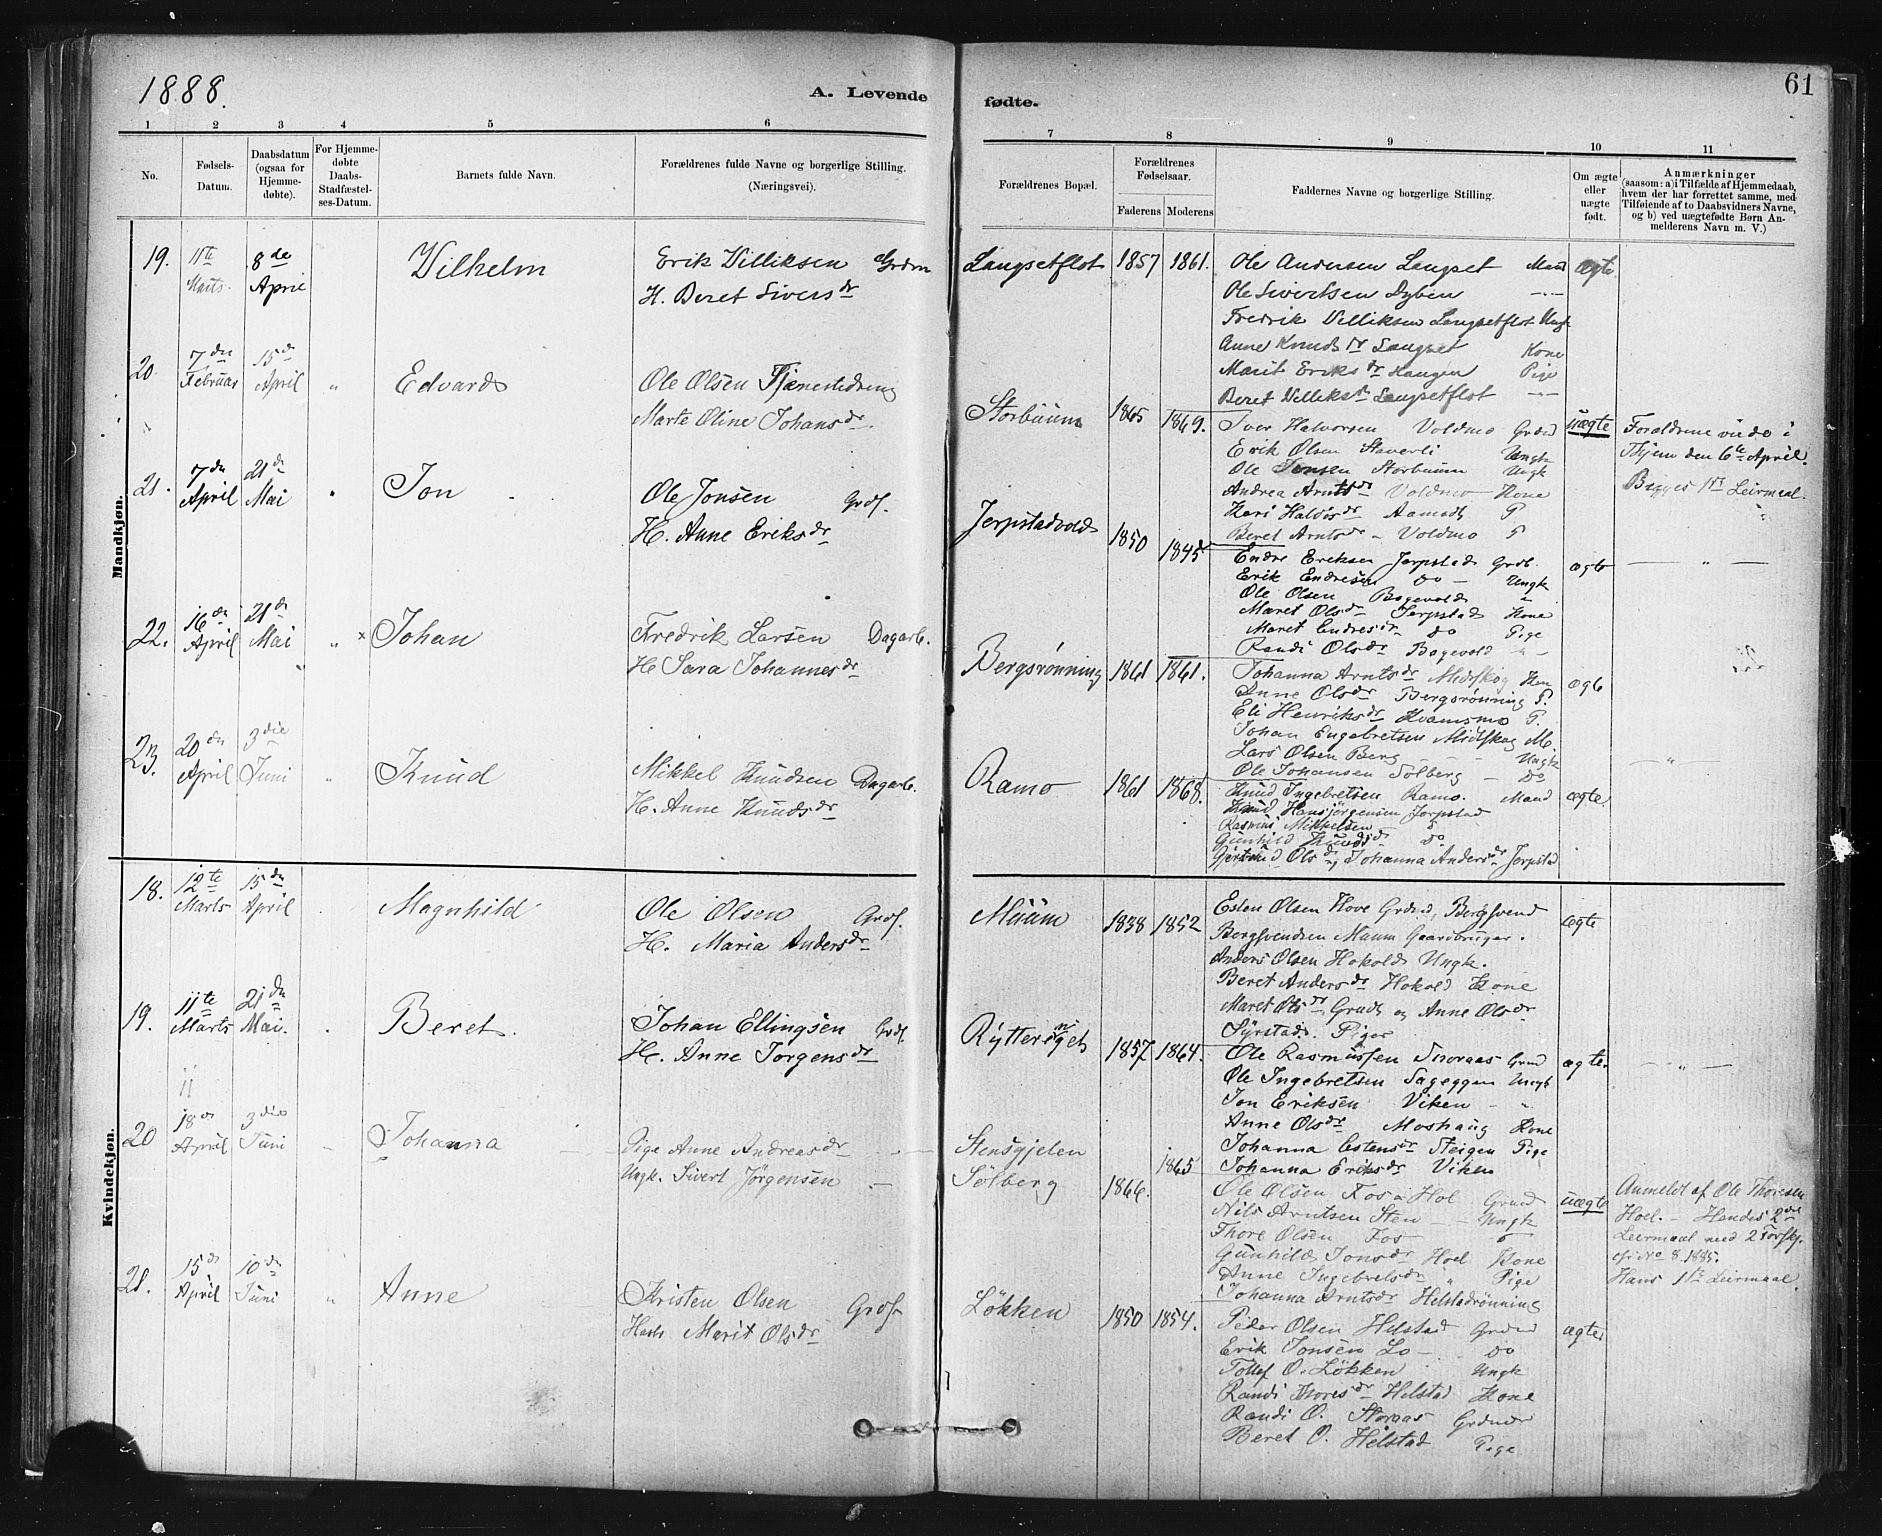 1888.
A. Levende
fødte.
61
1 2 3 4 5 6 7 8 9 10 11
No.
Fødsels-Datum.
Daabsdatum (ogsaa for Hjemmedøbte).
For Hjemmedøbte Daabs-Stadfæstelses-Datum.
Barnets fulde Navn.
Forældrenes fulde Navne og borgerlige Stilling. (Næringsvei).
Forældrenes Bopæl.
Forældrenes Fødselsaar.
Faderens
Moderens
Faddernes Navne og borgerlige Stilling.
Om ægte eller uægte født.
Anmærkninger (saasom: a) i Tilfælde af Hjemmedaab, hvem der har forrettet samme, med Tilføiende af to Daabsvidners Navne, og b) ved uægtefødte Børn Anmelderens Navn m. V.)
Mandkjøn.
19. 11te Marts. 8de April Vilhelm Erik Villiksen Grdm Langsetflot 1857 1861. Ole Andersen Langset Mand ægte
H. Beret Siversdr
Ole Sivertsen Dyben
Fredrik Villiksen Langsetflot Ungk
Anne Knudsdr Langset Kone
Marit Eriksdr Haugen Pige
Beret Villiksdr Langsetflot
20. 7du Februar 15de April " Edvard Ole Olsen Tjenestedreng Storbuum 1865 1869. Iver Halvorsen Voldmo Grdmd uægte Forældrene viede i
Marte Oline Johansdr.
Erik Olsen Staverli Ungk Thjem den 6te April.
Ole Jonsen Storbuum Ungk
Andrea Arntsdr Voldmo Kone Begges 1ste Leirmaal.
Kari Haldosdr Aamodt P
Beret Arntsdr Voldmo P
21. 7du April 21du Mai " Jon Ole Jonsen Grdf. Jerpstadvold 1850 1845 Endre Eriksen Jerpstad Grdb. ægte
H. Anne Eriksdr
Erik Endresen do Ungk
Ole Olsen Bagevold "
Maret Olsdr Jerpstad Kone
Maret Endresdr do Pige
Randi Olsdr Bagevold "
22. 16du April 21du Mai " × Johan Fredrik Larsen Dagarb. Bergsrønning 1861 1861. Johanna Arntsdr Midtskog Kon ægte
H. Sara Johannesdr
Anne Olsdr Bergsrønning P.
Eli Henriksdr Kvamsmo P.
Johan Engebretsen Midtskog M.
Lars Olsen Berg Ungk
Ole Johansen Solberg Do
23. 20du April 3die Juni " Knud Mikkel Knudsen Dagarb. Ramo 1861 1868. Knud Ingebretsen Ramo. Mand ægte
H. Anne Knudsdr
Knud Hansjörgensen Jerpstad
Rasmus Mikkelsen do
Gunhild Knudsdr do
Gjertrud Olsdr, Johanna Andersdr Jerpstad
Kvindekjøn.
18. 12te Marts 15du April Magnhild Ole Olsen Grdf. Muum 1838 1852 Esten Olsen Hove Grdmd, Bergsvend ægte
H. Maria Andersdr
Bergsvendsen Muum Gaardbruger.
Anders Olsen Hokold Ungk.
Beret Andersdr Hokold Kone
Maret Olsdr Grudt og Anne Olsdr
Syrstad. Piger
19. 11te Marts 21du Mai. Beret. Johan Ellingsen Grdf. Rytterenget 1857 1864. Ole Rasmussen Snoraas Grmd ægte.
H. Anne Jörgensdr
Ole Ingebretsen Sageggen Ungk
Jon Eriksen Viken "
Anne Olsdr Moshaug Kone
Johanna Estensdr Steigen Pige
Johanna Eriksdr Viken
20 18de April 3die Juni Johanna Pige Anne Andreasdr Stensgjelen 1865
Ungk. Sivert Jørgensen Solberg 1866. Ole Olsen Fos a Hol Grmd uægte Anmeldt af Ole Thoresen
Nils Arntsen Sten Ungk Hoel. — Hendes 2det
Thore Olsen Fos Leirmaal med 2 Forskj.
Gunhild Jonsdr Hoel Kone cfr No 8 1885.
Anne Ingebretsdr " Pige Hans 1ste Leirmaal.
Johanna Arntsdr Helstadrønning
21. 15de April 10de Juni " Anne Kristen Olsen Grdf Løkken 1850 1854. Peder Olsen Helstad Grdmd ægte
Hustr. Marit Olsdr
Erik Jonsen Lo do
Tollef O. Løkken Ungk
Randi Thoresdr Helstad Kone
Randi O. Storaas
Beret O. Helstad Pige